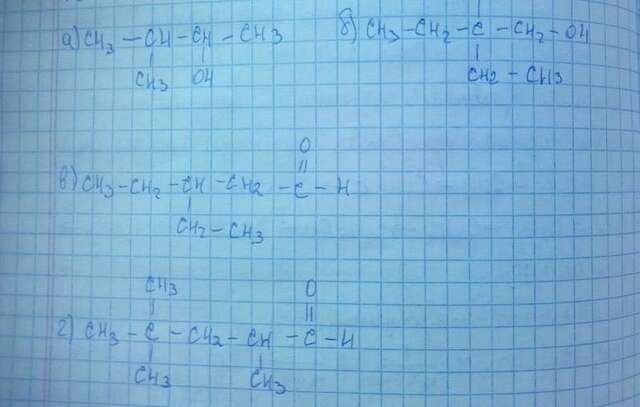 а) CH3 — CH — CH — CH3
CH3 OH
б) CH3 — CH2 — C — CH2 — OH
CH2 — CH3
O
||
в) CH3 — CH2 — CH — CH2 — C — H
CH2 — CH3
CH3 O
||
г) CH3 — C — CH2 — CH — C — H
CH3 CH3